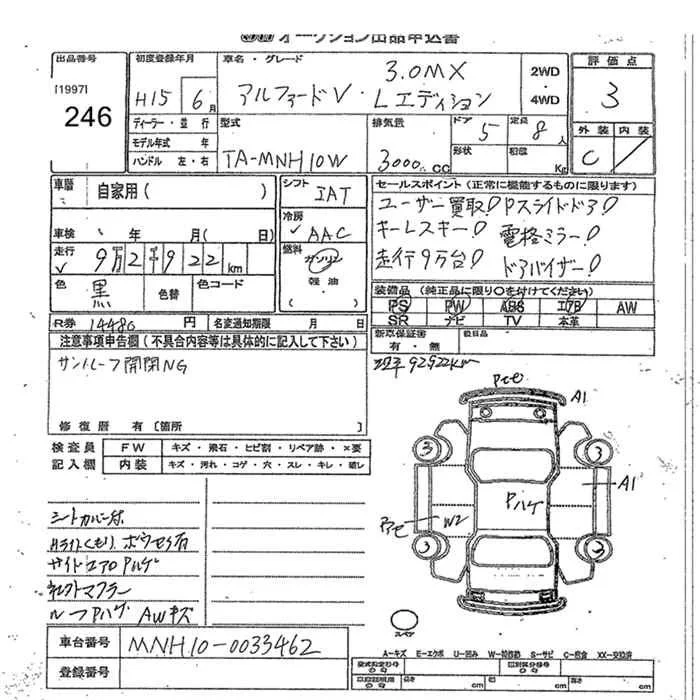 オークション出品申込書
出品番号
[1997]
246
初度登録年月
H15 6月
車名・グレード
3.0MX
アルファードV・Lエディション
2WD
・
4WD
評価点
3
外装 内装
C /
ディーラー・並行
モデル年式 年
ハンドル 左・右
型式
TA-MNH10W
排気量
3000 cc
ドア
5
定員
8人
形状
Kg
車歴
自家用( )
車検 年 月( 日)
走行
9万2千922km
色
黒
色替
色コード
シフト
IAT
冷房
AAC
燃料
ガソリン
軽油
( )
セールスポイント(正常に機能するものに限ります)
ユーザー買取! Pスライドドア!
キーレスキー! 電格ミラー!
走行9万台! ドアバイザー!
装備品(純正品に限り○を付けてください)
PS PW ABS エアB AW
SR ナビ TV 本革
R券 14480円 名変通知期限 月 日
新車保証書
有・無
後日品
注意事項申告欄(不具合内容等は具体的に記入して下さい)
サンルーフ開閉NG
92922km
修復歴 有〔箇所 〕
検査員
記入欄
FW キズ・飛石・ヒビ割・リペア跡・×要
内装 キズ・汚れ・コゲ・穴・スレ・キレ・破レ
A1
3 3
Pハゲ
A1
W2
3 2
シートカバー
Hライトくもり、ボウセイ有
サイドエアロPハゲ
マフラー
ルーフPハゲ AWキズ
スペア
車台番号 MNH10-0033462
登録番号
A-キズ E-エクボ U-凹み W-補修跡 S-サビ C-腐食 XX-交換済
型式指定番号
類別区分番号
長さ cm
幅 cm
高さ cm